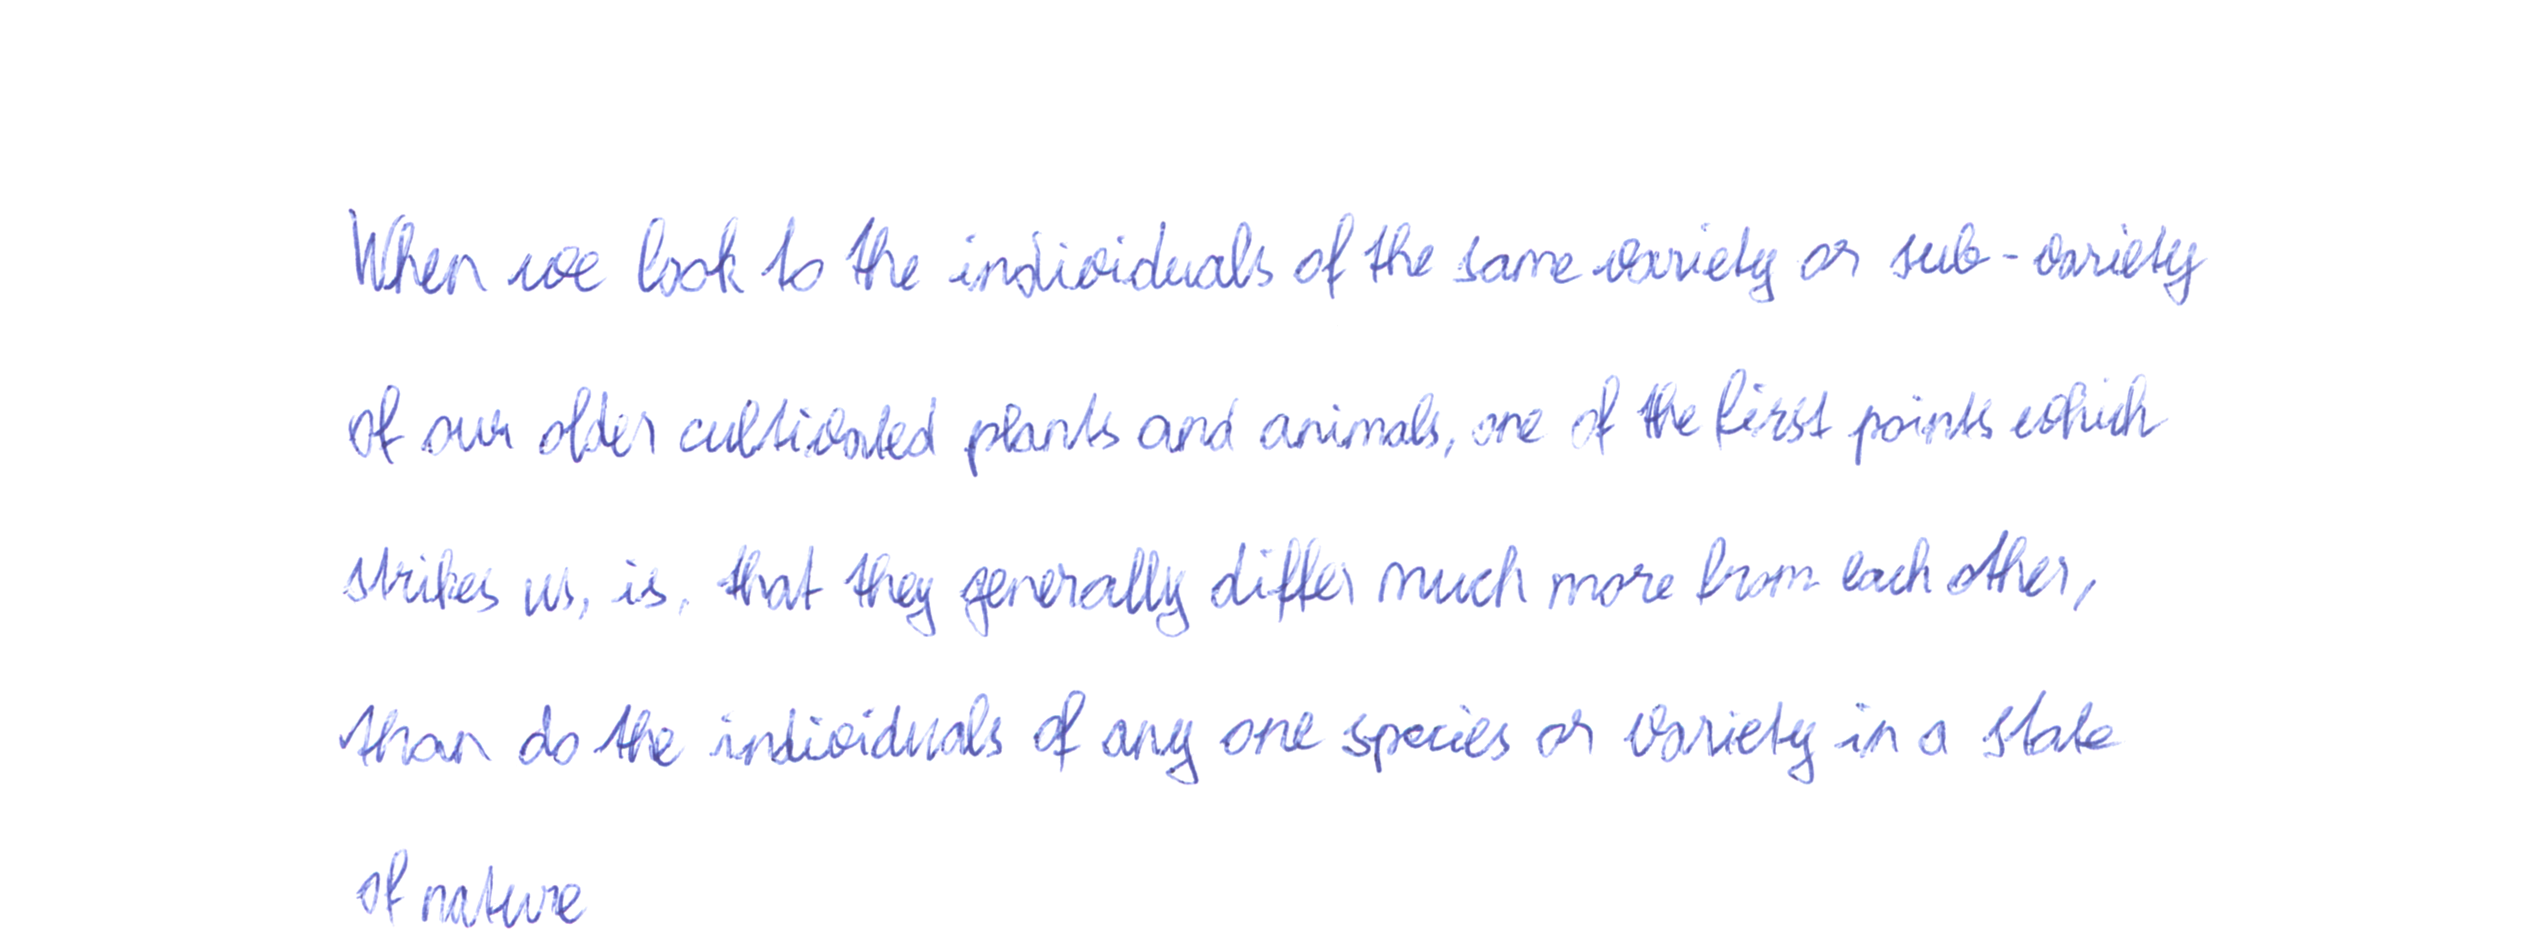 When we look to the individuals of the same variety or sub-variety
of our older cultivated plants and animals, one of the first points which
strikes us, is, that they generally differ much more from each other,
than do the individuals of any one species or variety in a state
of nature